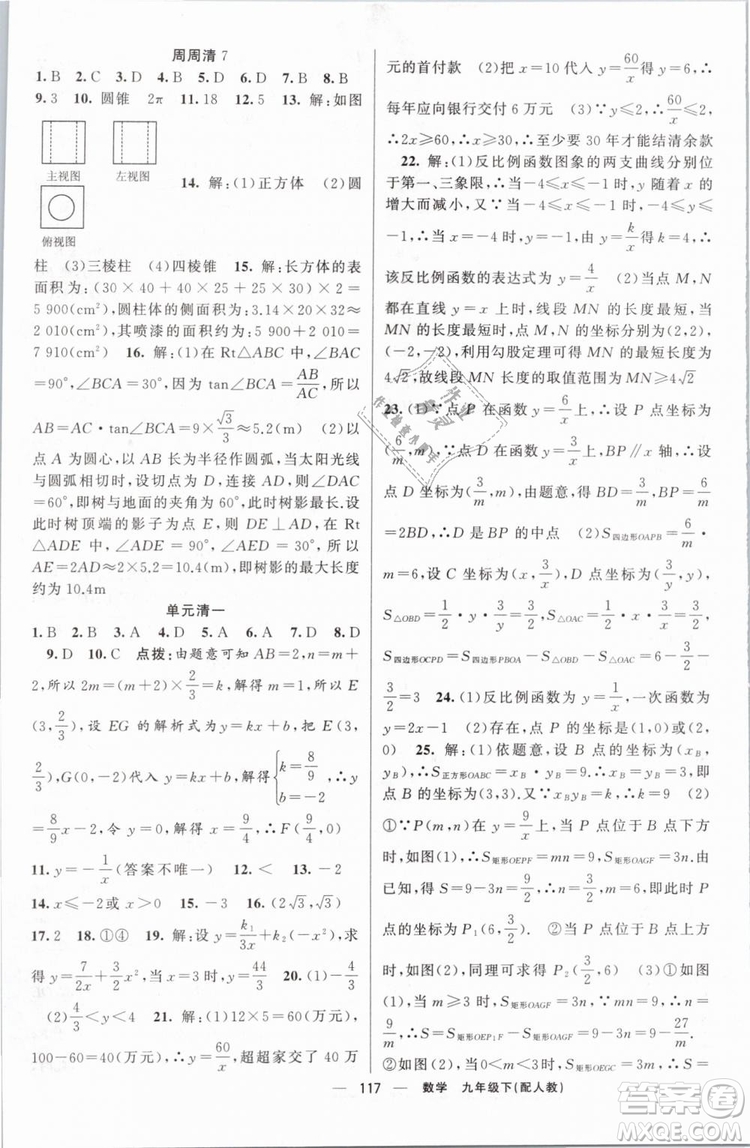 周周清 7
1. B 2. C 3. D 4. B 5. D 6. B 7. B 8. B
9. 3 10. 圆锥 2π 11. 18 12. 5 13. 解:如图
主视图 左视图
14. 解:(1)正方体 (2)圆
俯视图
柱 (3)三棱柱 (4)四棱锥 15. 解:长方体的表
面积为:(30×40+40×20+30×20)×2=
5 900(cm²),圆柱体的侧面积为:3.14×20×32≈
2 010(cm²),其喷漆的面积约为:5 900+2 010=
7 910(cm²) 16. 解:(1)在 Rt△ABC 中,∠BAC
=90°,∠BCA=30°,因为 tan∠BCA=AB/AC,所以
AB=AC·tan∠BCA=9×√3/3≈5.2(m) (2)以
点 A 为圆心,以 AB 长为半径作圆弧,当太阳光线
与圆弧相切时,设切点为 D,连接 AD,则∠DAC
=60°,即树与地面的夹角为 60°时,树影最长.
此时树顶端的影子为点 E,由 DE⊥AD,在 Rt
△ADE 中,∠ADE=90°,∠AED=30°,所以
AE=2AD≈2×5.2=10.4(m),即树影的最大长
度约为 10.4m
单元清一
1. B 2. B 3. A 4. D 5. A 6. A 7. D 8. D
9. D 10. C 点拨:由题意可知 AB=2,n=m+
2,所以 2m=(m+2)×2/3=k,解得 m=1,所以 E
(3,2/3),设 EG 的解析式为 y=kx+b,把 E(3,
2/3),G(0,-2)代入 y=kx+b,解得{k=8/9 b=-2,∴y
=8/9x-2,令 y=0,解得 x=9/4,∴F(9/4,0)
11. y=-1/x(答案不唯一) 12. < 13. -2
14. x≤-2或x>0 15. 2√3 16. (2√3,√3)
17. 2 18. ①④ 19. 解:设 y=k₁/3x+k₂(-x²),求
得 y=7/2x+3/2x²,当 x=3 时,y=44/3 20. (1)3/x
(2)3/2<y<4 21. 解:(1)12×5=60(万元),
100-60=40(万元),∴y=60/x,超超家交了 40 万
元的首付款 (2)把 x=10 代入 y=60/x得 y=6,∴
每年应向银行交付 6 万元 (3)∵y≤2,∴60/x≤2,
∴2x≥60,∴x≥30,∴至少要 30 年才能结清余款
22. 解:(1)反比例函数图象的两支曲线分别位
于第一、三象限,∴当-4≤x≤-1 时,y 随着 x 的
增大而减小,又∵当-4≤x≤-1 时,-4≤y≤
-1,∴当 x=-4 时,y=-1,由 y=k/x得 k=4,∴
该反比例函数的表达式为 y=4/x (2)当点 M,N
都在直线 y=x 上时,线段 MN 的长度最短,当
MN 的长度最短时,点 M,N 的坐标分别为(2,2),
(-2,-2),利用勾股定理可得 MN 的最短长度为
4√2,故线段 MN 的取值范围为 MN≥4√2
23. (1)∵点 P 在函数 y=6/x上,∴设 P 点坐标为
(6/m,m).∵点 D 在函数 y=3/x上,BP∥x轴,∴设
点 D 坐标为(3/m,m),由题意,得 BD=3/m,BP=6/m
=2BD,∴D 是 BP 的中点 (2)S四边形OAPB=6/m·
m=6,设 C 点坐标为(x,3/x),D 点坐标为(3/y,y),
S△OBD=1/2·y·3/y=3/2,S△OAC=1/2·x·3/x=3/2,
S四边形OCPD=S四边形PBOA-S△OBD-S△OAC=6-3/2-
3/2=3 24. (1)反比例函数为 y=1/x,一次函数为
y=2x-1 (2)存在,点 P 的坐标为(1,0)或(2,
0) 25. 解:(1)依题意,设 B 点的坐标为(xB,
yB),∴S正方形OABC=xB·yB=9,∴xB=yB=3,即
点 B 的坐标为(3,3).∵xByB=k,∴k=9 (2)
①∵P(m,n)在 y=9/x上,当 P 点位于 B 点下方
时,如图(1),∴S矩形OEPF=mn=9,S矩形OAGF=3n.由
已知,得 S=9-3n=9/2,∴n=3/2,m=6,即此时 P
点的坐标为 P₁(6,3/2).当 P 点位于 B 点上方时,
如图(2),同理可求得 P₂(3/2,6) ②当如图(1),
m≥3 时,S矩形OAGF=3n.∵mn=9,∴n=
9/m,∴S=S矩形OEP₁F-S矩形OAGF=9-3n=9-27/m.
②如图(2),当 0<m<3 时,S矩形OEGC=3m,∴
117 数学 九年级下(配人教)
作业精灵
作业检查小助手
答案圈
MXQE.COM